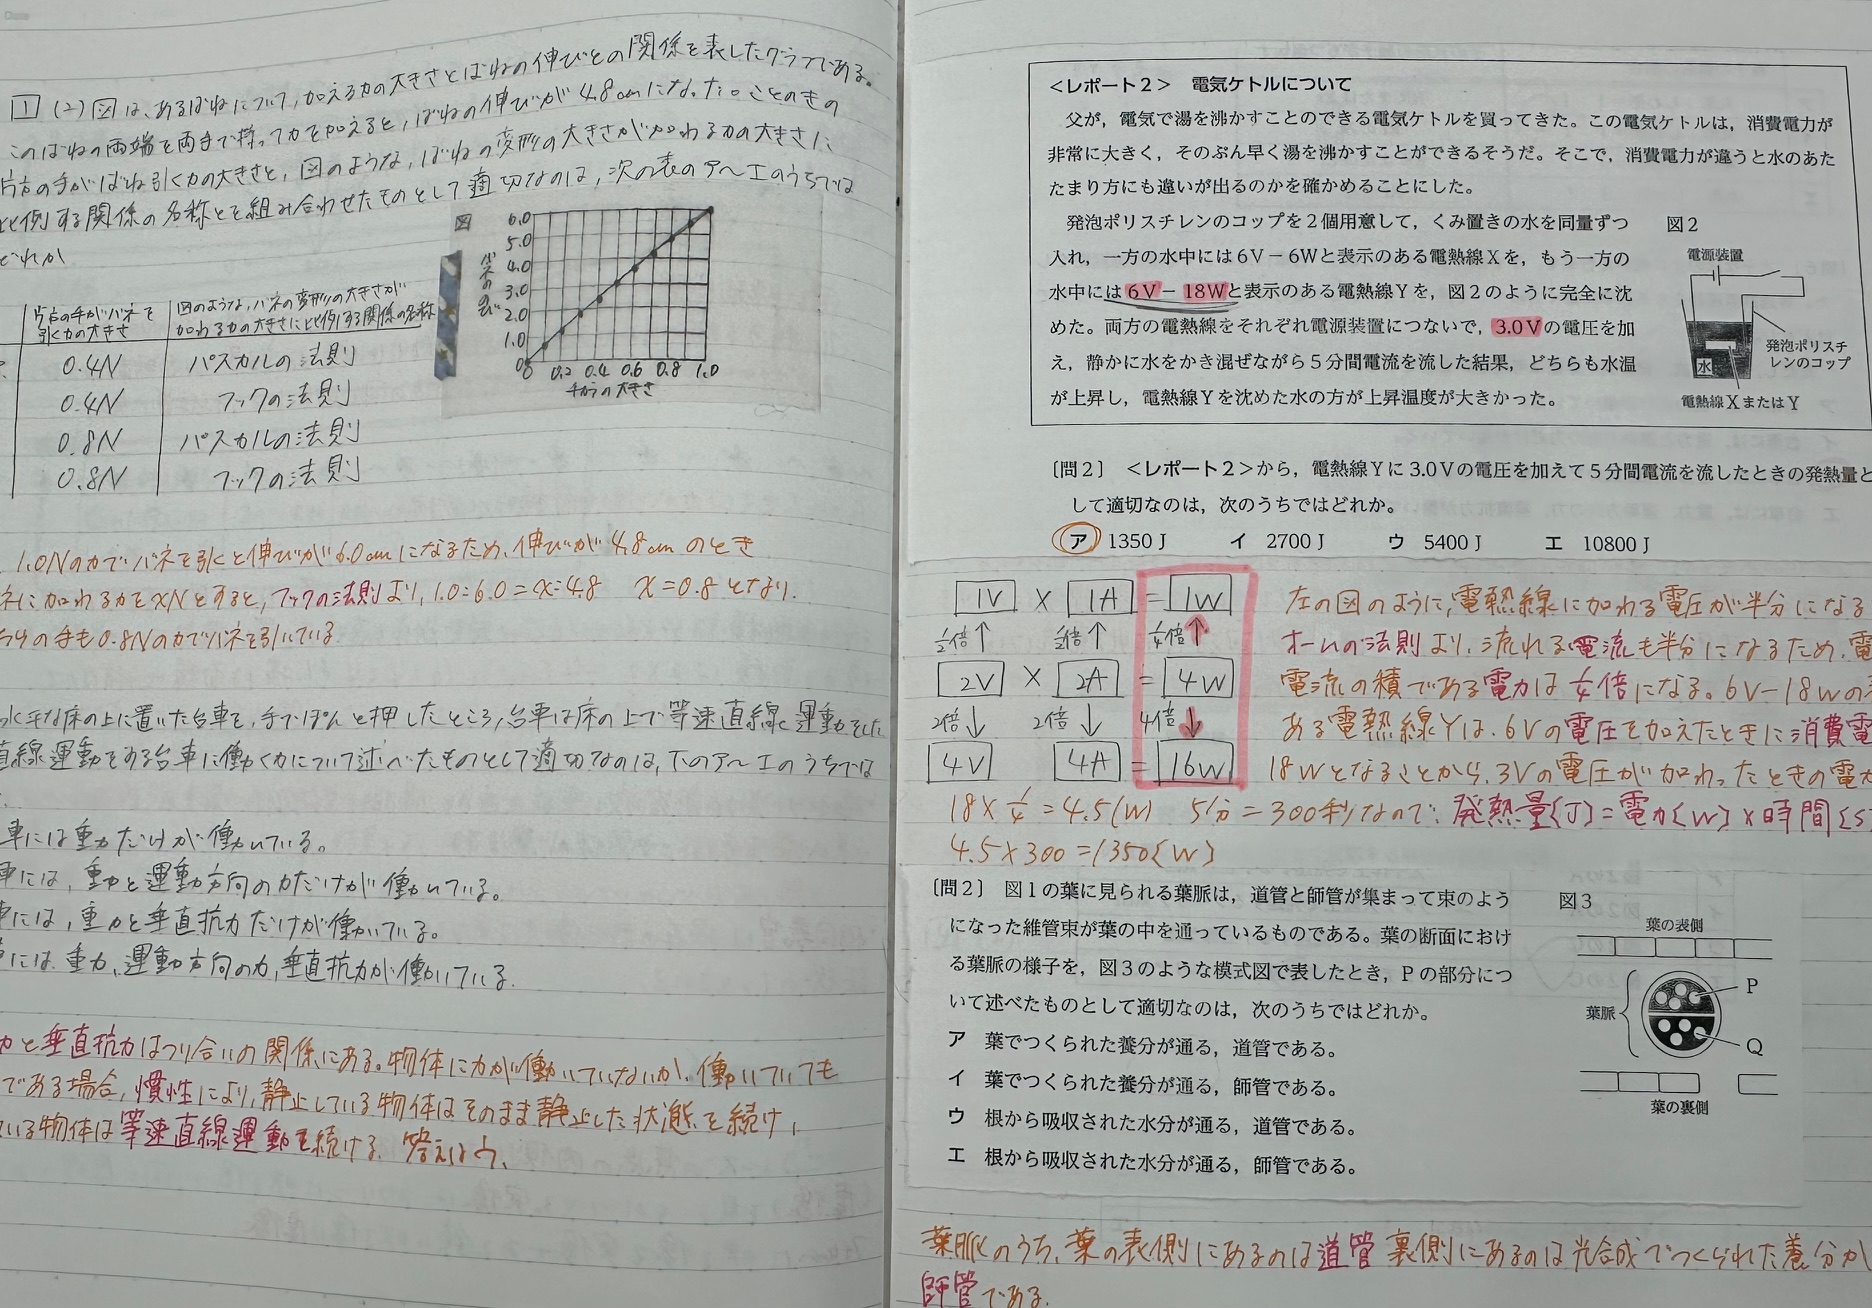 1 (2) 図は、あるばねについて、加える力の大きさとばねの伸びとの関係を表したグラフである。
このばねの両端を両手で持って力を加えると、ばねの伸びが4.8cmになった。このときの
片方の手がばね引く力の大きさと、図のような、ばねの変形の大きさが加わる力の大きさに
比例する関係の名称とを組み合わせたものとして適切なのは、次の表のア～エのうちでは
どれか
片方の手がバネを引く力の大きさ
図のような、バネの変形の大きさが
加わる力の大きさに比例する関係の名称
0.4N パスカルの法則
0.4N フックの法則
0.8N パスカルの法則
0.8N フックの法則
図
バネののび
6.0
5.0
4.0
3.0
2.0
1.0
0
0 0.2 0.4 0.6 0.8 1.0
チカラの大きさ
1.0Nの力でバネを引くと伸びが6.0cmになるため、伸びが4.8cmのとき
ネに加わる力をxNとすると、フックの法則より、1.0:6.0=x:4.8 x=0.8となり、
の手も0.8Nの力でバネを引いている
水平な床の上に置いた台車を、手でぽんと押したところ、台車は床の上で等速直線運動をした
直線運動をする台車に働く力について述べたものとして適切なのは、下のア～エのうちでは
車には重力だけが働いている。
車には、重力と運動方向の力だけが働いている。
車には、重力と垂直抗力だけが働いている。
には、重力、運動方向の力、垂直抗力が働いている。
力と垂直抗力はつり合いの関係にある。物体に力が働いていないか、働いていても
である場合、慣性により、静止している物体はそのまま静止した状態を続け、
ている物体は等速直線運動を続ける。答えはウ、
<レポート2> 電気ケトルについて
父が，電気で湯を沸かすことのできる電気ケトルを買ってきた。この電気ケトルは，消費電力が
非常に大きく，そのぶん早く湯を沸かすことができるそうだ。そこで，消費電力が違うと水のあた
たまり方にも違いが出るのかを確かめることにした。
発泡ポリスチレンのコップを2個用意して，くみ置きの水を同量ずつ
入れ，一方の水中には6V－6Wと表示のある電熱線Xを，もう一方の
水中には6V－18Wと表示のある電熱線Yを，図2のように完全に沈
めた。両方の電熱線をそれぞれ電源装置につないで，3.0Vの電圧を加
え，静かに水をかき混ぜながら5分間電流を流した結果，どちらも水温
が上昇し，電熱線Yを沈めた水の方が上昇温度が大きかった。
図2
電源装置
発泡ポリスチ
レンのコップ
水
電熱線XまたはY
〔問2〕 <レポート2>から，電熱線Yに3.0Vの電圧を加えて5分間電流を流したときの発熱量と
して適切なのは，次のうちではどれか。
ア 1350J イ 2700J ウ 5400J エ 10800J
1V × 1A = 1W
1/2倍↑ 1/2倍↑ 1/4倍↑
2V × 2A = 4W
2倍↓ 2倍↓ 4倍↓
4V 4A = 16W
左の図のように、電熱線に加わる電圧が半分になる
オームの法則より、流れる電流も半分になるため、電
電流の積である電力は1/4倍になる。6V-18Wの
ある電熱線Yは、6Vの電圧を加えたときに消費電
18Wとなることから、3Vの電圧が加わったときの電力
18×1/4=4.5(W) 5分=300秒なので、発熱量[J]=電力[W]×時間[s
4.5×300=1350[W]
〔問2〕 図1の葉に見られる葉脈は，道管と師管が集まって束のよう
になった維管束が葉の中を通っているものである。葉の断面におけ
る葉脈の様子を，図3のような模式図で表したとき，Pの部分につ
いて述べたものとして適切なのは，次のうちではどれか。
ア 葉でつくられた養分が通る，道管である。
イ 葉でつくられた養分が通る，師管である。
ウ 根から吸収された水分が通る，道管である。
エ 根から吸収された水分が通る，師管である。
図3
葉の表側
P
葉脈
Q
葉の裏側
葉脈のうち、葉の表側にあるのは道管 裏側にあるのは光合成でつくられた養分が
師管である。